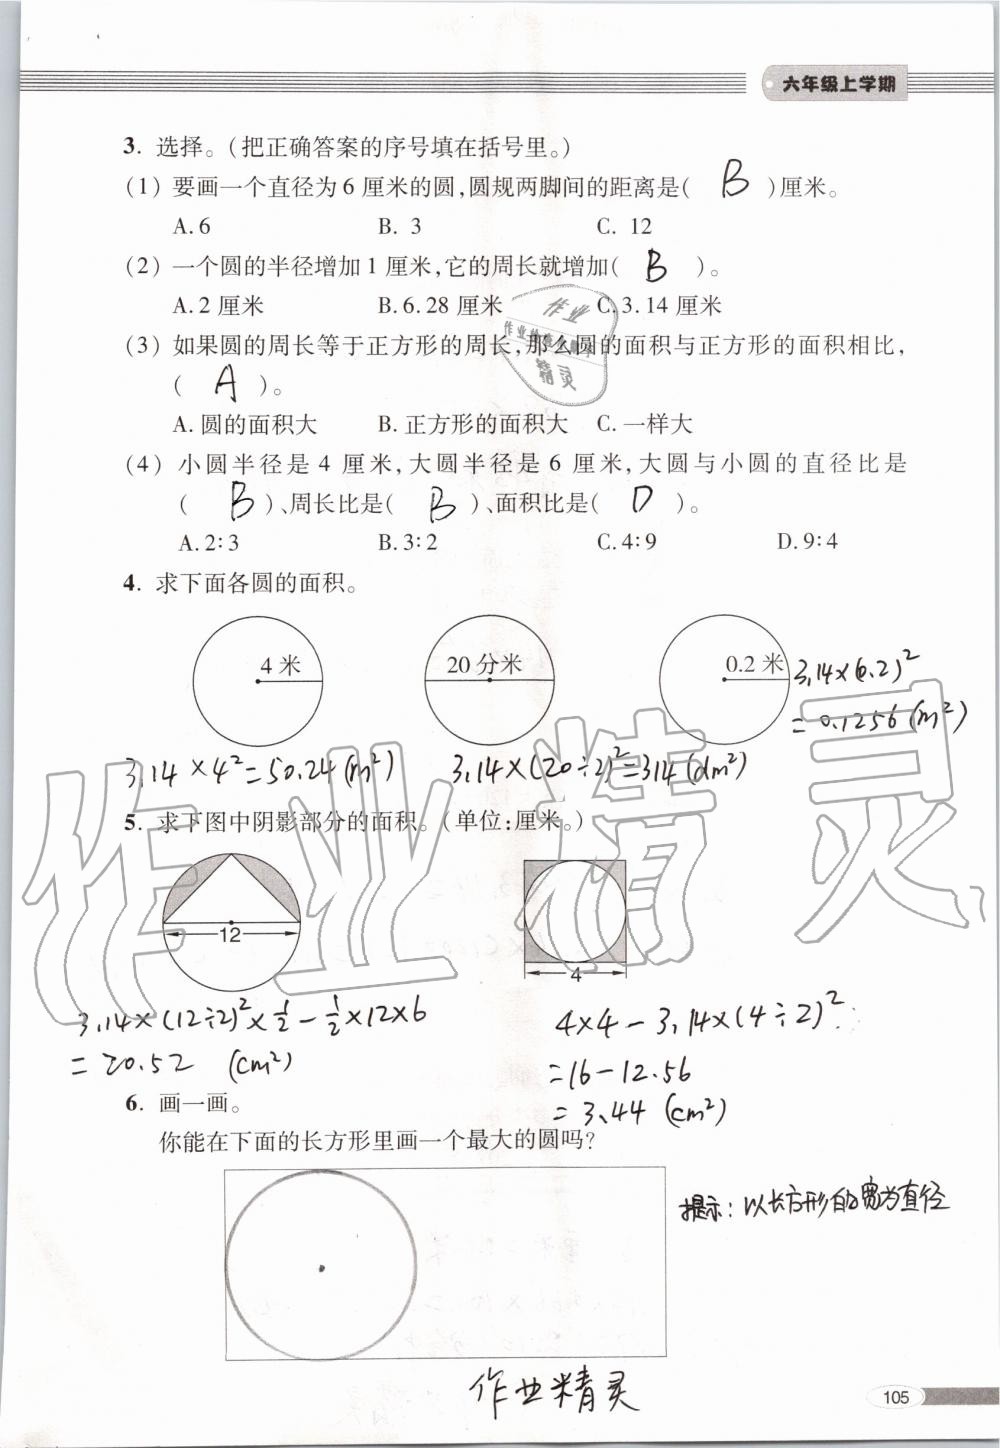 六年级上学期
3. 选择。(把正确答案的序号填在括号里。)
(1) 要画一个直径为6厘米的圆,圆规两脚间的距离是( B )厘米。
A. 6 B. 3 C. 12
(2) 一个圆的半径增加1厘米,它的周长就增加( B )。
A. 2厘米 B. 6.28厘米 C. 3.14厘米
(3) 如果圆的周长等于正方形的周长,那么圆的面积与正方形的面积相比,
( A )。
A. 圆的面积大 B. 正方形的面积大 C. 一样大
(4) 小圆半径是4厘米,大圆半径是6厘米,大圆与小圆的直径比是
( B )、周长比是( B )、面积比是( D )。
A. 2∶3 B. 3∶2 C. 4∶9 D. 9∶4
4. 求下面各圆的面积。
4米 20分米 0.2米
3.14×(0.2)²
=0.1256(m²)
3.14×4²=50.24(m²) 3.14×(20÷2)²=314(dm²)
5. 求下图中阴影部分的面积。(单位:厘米。)
12 4
3.14×(12÷2)²×1/2-1/2×12×6
=20.52 (cm²)
4×4-3.14×(4÷2)²
=16-12.56
=3.44 (cm²)
6. 画一画。
你能在下面的长方形里画一个最大的圆吗?
提示:以长方形的宽为直径
作业精灵
105
作业精灵
作业
精灵